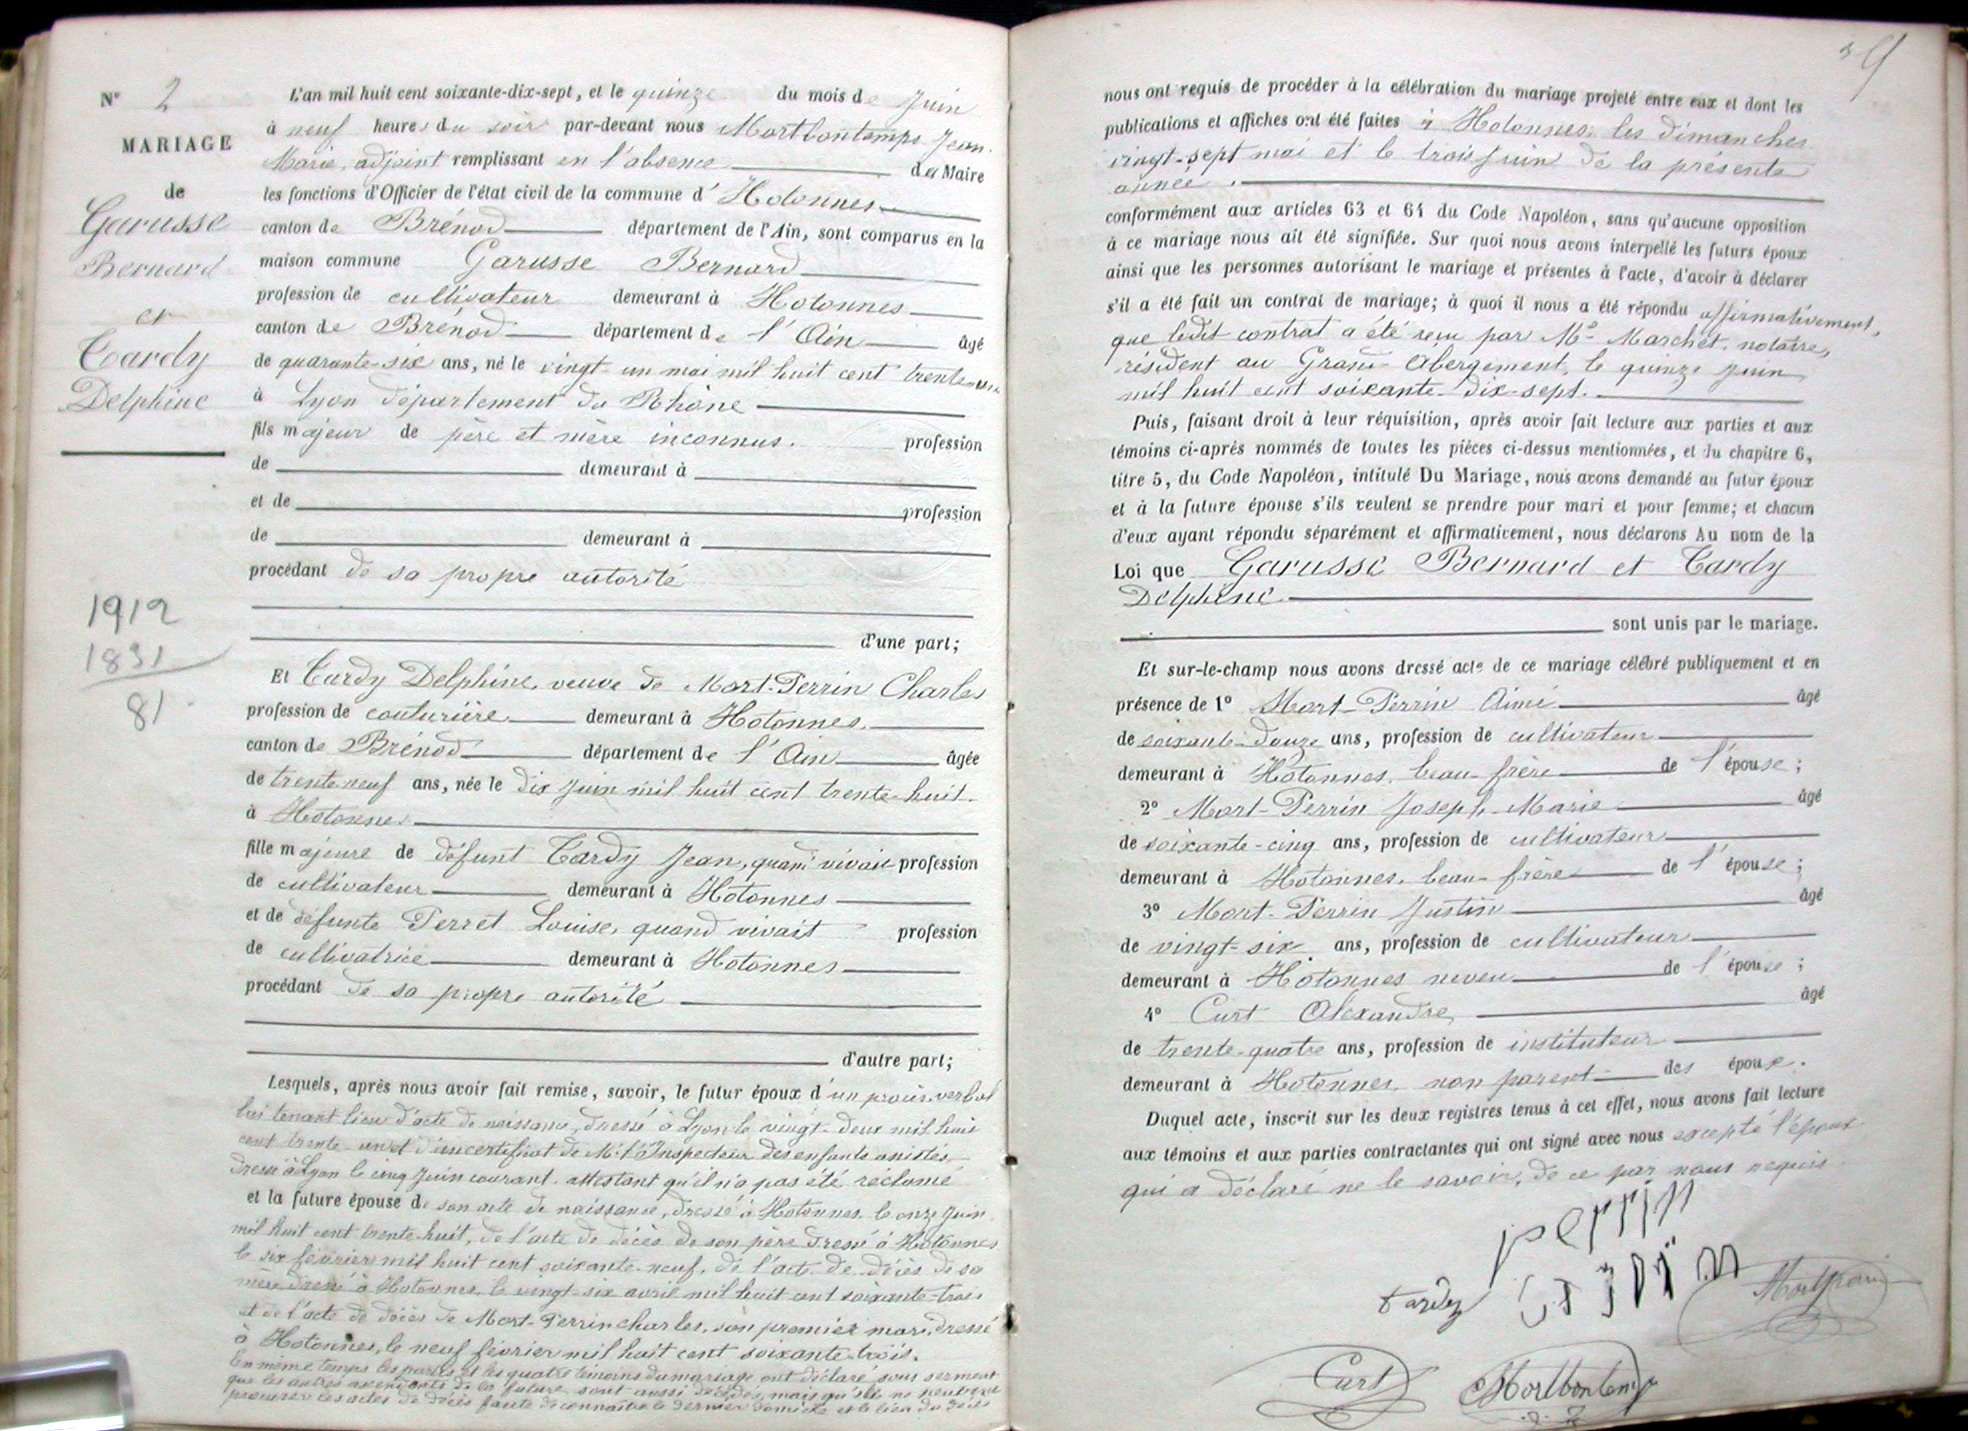 N° 2
MARIAGE
de
Garusse
Bernard
et
Tardy
Delphine
1912
1831
81
L'an mil huit cent soixante-dix-sept, et le quinze du mois de Juin
à neuf heures du soir par-devant nous Mortbontemps Jean
Marie, adjoint remplissant en l'absence du Maire
les fonctions d'Officier de l'état civil de la commune d' Hotonnes
canton de Brénod département de l'Ain, sont comparus en la
maison commune Garusse Bernard
profession de cultivateur demeurant à Hotonnes
canton de Brénod département de l'Ain âgé
de quarante-six ans, né le vingt-un mai mil huit cent trente-un
à Lyon département du Rhône
fils majeur de père et mère inconnus. profession
de demeurant à
et de profession
de demeurant à
procédant de sa propre autorité
d'une part;
Et Tardy Delphine, veuve de Mort-Perrin Charles
profession de couturière demeurant à Hotonnes
canton de Brénod département de l'Ain âgée
de trente-neuf ans, née le dix Juin mil huit cent trente-huit.
à Hotonnes
fille majeure de défunt Tardy Jean, quand vivait profession
de cultivateur demeurant à Hotonnes
et de défunte Perret Louise, quand vivait profession
de cultivatrice demeurant à Hotonnes
procédant de sa propre autorité
d'autre part;
Lesquels, après nous avoir fait remise, savoir, le futur époux d'un procès-verbal
lui tenant lieu d'acte de naissance, dressé à Lyon le vingt-deux mil huit
cent trente-un et d'un certificat de Mr l'Inspecteur des enfants assistés
dressé à Lyon le cinq Juin courant. attestant qu'il n'a pas été réclamé
et la future épouse de son acte de naissance, dressé à Hotonnes le onze Juin
mil huit cent trente-huit, de l'acte de décès de son père dressé à Hotonnes
le six février mil huit cent soixante-neuf, de l'acte de décès de sa
mère dressé à Hotonnes, le vingt-six avril mil huit cent soixante-trois
et de l'acte de décès de Mort-Perrin charles, son premier mari, dressé
à Hotonnes, le neuf février mil huit cent soixante-trois.
En même temps les parties et les quatre témoins du mariage ont déclaré sous serment
que les autres ascendants de la future sont aussi décédés, mais qu'ils ne peuvent
procurer les actes de décès faute de connaître le dernier domicile et le lieu du décès
nous ont requis de procéder à la célébration du mariage projeté entre eux et dont les
publications et affiches ont été faites à Hotonnes, les dimanches
vingt-sept mai et le trois Juin de la présente
année.
conformément aux articles 63 et 64 du Code Napoléon, sans qu'aucune opposition
à ce mariage nous ait été signifiée. Sur quoi nous avons interpellé les futurs époux
ainsi que les personnes autorisant le mariage et présentes à l'acte, d'avoir à déclarer
s'il a été fait un contrat de mariage; à quoi il nous a été répondu affirmativement,
que ledit contrat a été reçu par Me Marchet, notaire,
résident au Grand Abergement, le quinze Juin
mil huit cent soixante-dix-sept.
Puis, faisant droit à leur réquisition, après avoir fait lecture aux parties et aux
témoins ci-après nommés de toutes les pièces ci-dessus mentionnées, et du chapitre 6,
titre 5, du Code Napoléon, intitulé Du Mariage, nous avons demandé au futur époux
et à la future épouse s'ils veulent se prendre pour mari et pour femme; et chacun
d'eux ayant répondu séparément et affirmativement, nous déclarons Au nom de la
Loi que Garusse Bernard et Tardy
Delphine
sont unis par le mariage.
Et sur-le-champ nous avons dressé acte de ce mariage célébré publiquement et en
présence de 1° Mort-Perrin Aimé âgé
de soixante-douze ans, profession de cultivateur
demeurant à Hotonnes, beau-frère de l'épouse;
2° Mort-Perrin Joseph-Marie âgé
de soixante-cinq ans, profession de cultivateur
demeurant à Hotonnes, beau-frère de l'épouse;
3° Mort-Perrin Justin âgé
de vingt-six ans, profession de cultivateur
demeurant à Hotonnes neveu de l'épouse;
4° Curt Alexandre, âgé
de trente-quatre ans, profession de instituteur
demeurant à Hotonnes non parent des époux.
Duquel acte, inscrit sur les deux registres tenus à cet effet, nous avons fait lecture
aux témoins et aux parties contractantes qui ont signé avec nous excepté l'époux
qui a déclaré ne le savoir, de ce par nous requis
perrin
tardy
Mortperrin
Curt
Mortbontemps